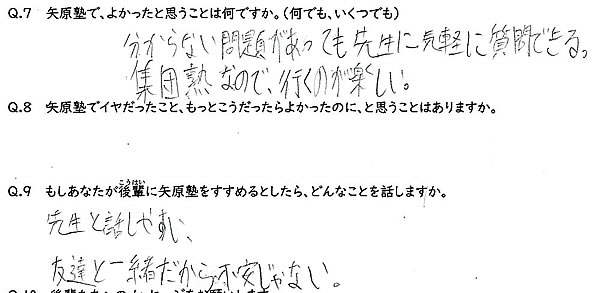 Q.7 矢原塾で、よかったと思うことは何ですか。(何でも、いくつでも)
分からない問題があっても先生に気軽に質問できる。
集団熟なので、行くのが楽しい。
Q.8 矢原塾でイヤだったこと、もっとこうだったらよかったのに、と思うことはありますか。
こうはい
Q.9 もしあなたが後輩に矢原塾をすすめるとしたら、どんなことを話しますか。
先生と話しやすい、
友達と一緒だから不安じゃない。